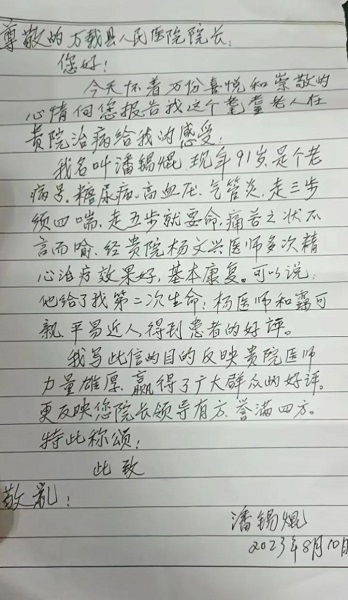 尊敬的万载县人民医院院长:
您好!
今天怀着万份喜悦和崇敬的
心情向您报告我这个耄耋老人在
贵院治病给我的感受。
我名叫潘锡焜,现年91岁,是个老
病号,糖尿病、高血压、气管炎,走三步
须四喘,走五步就要命,痛苦之状不
言而喻,经贵院杨文兴医师多次精
心治疗效果好,基本康复。可以说:
他给了我第二次生命;杨医师和霭可
亲,平易近人,得到患者的好评。
我写此信的目的反映贵院医师
力量雄厚,赢得了广大群众的好评。
更反映您院长领导有方,誉满四方。
特此称颂!
此致
敬礼!
潘锡焜
2023年8月10日